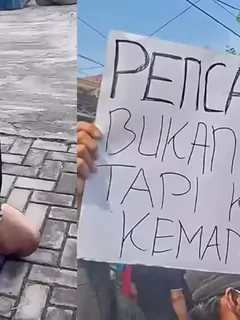 PENCA
BUKAN
TAPI K
KEMAN